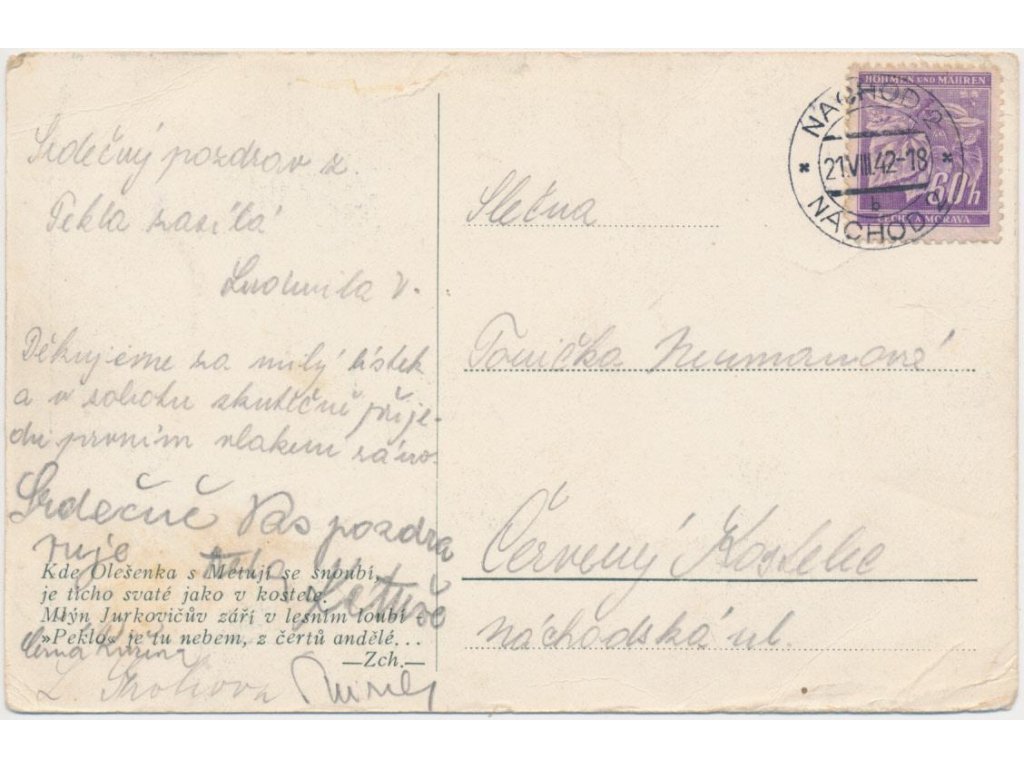 Srdečný pozdrav z
Pekla zasílá
Ludmila V.
Děkujeme za milý lístek
a v sobotu skutečně přije-
du prvním vlakem ráno.
Srdečně Vás pozdra
vuje
Kde Olešenka s Metují se snoubí,
je ticho svaté jako v kostele.
Mlýn Jurkovičův září v lesním loubí —
»Peklo« je tu nebem, z čertů andělé...
—Zch.—
BÖHMEN UND MÄHREN
60h
ČECHY A MORAVA
NÁCHOD 2
21.VIII.42-18
b
NÁCHOD 2
Slečna
Tonička Neumanové
Červený Kostelec
Náchodská ul.